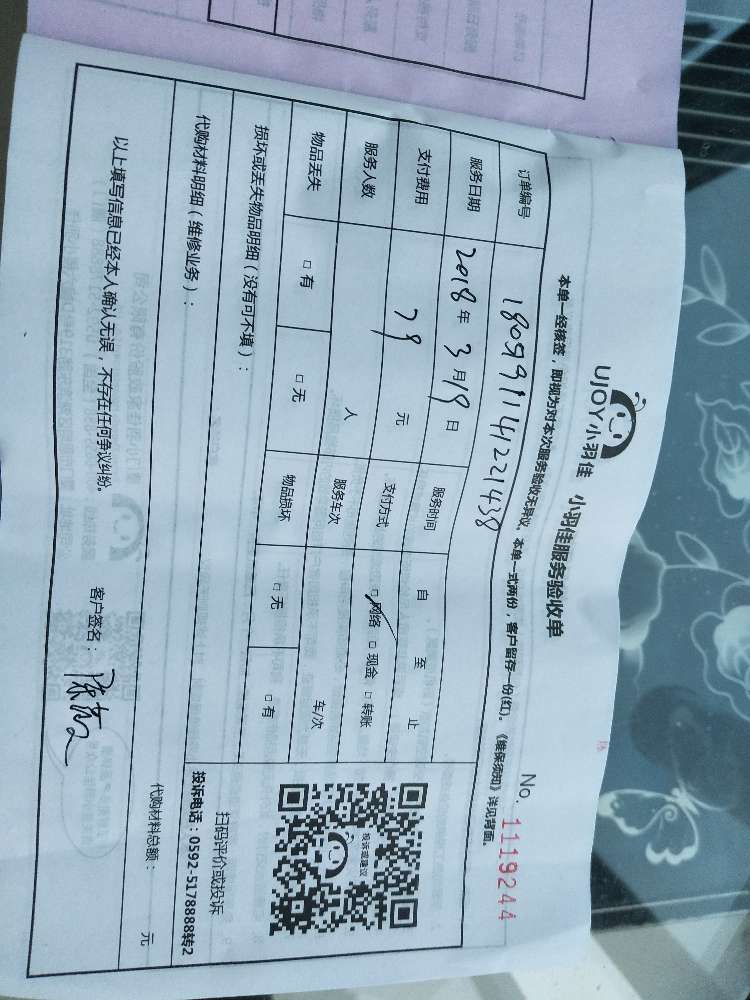 UJOY小羽佳 小羽佳服务验收单
No. 1119244
本单一经核签，即视为对本次服务验收无异议。本单一式两份，客户留存一份(红)。《维保须知》详见背面。
订单编号
服务日期 2018年3月19日 服务时间 自 至 止
支付费用 78 元 支付方式 □网络 □现金 □转账
服务人数 人 服务车次 车/次
物品丢失 □有 □无 物品损坏 □无 □有
损坏或丢失物品明细（没有可不填）：
扫码评价或投诉
投诉电话：0592-5178888转2
投诉或建议
代购材料明细（维修业务）：
代购材料总额： 元
以上填写信息已经本人确认无误，不存在任何争议纠纷。
客户签名：